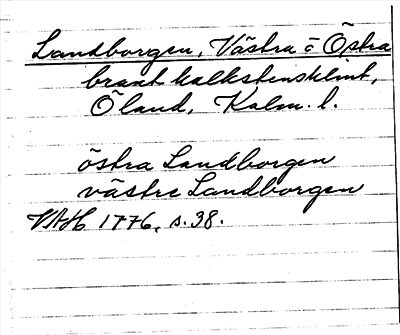 Landborgen, Västra o Östra
brant kalkstensklint,
Öland, Kalm. l.
östra Landborgen
västre Landborgen
VAH 1776, s. 38.